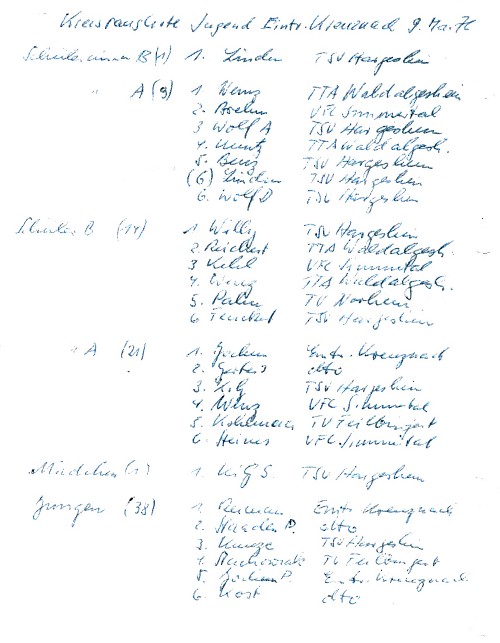 Kreisrangliste Jugend Eintr. Kreuznach 9. Ma. 76
Schülerinnen B (1) 1. Linden TSV Hargesheim
" A (9) 1 Wenz TTA Waldalgesheim
2. Boehm VfL Simmertal
3 Wolf A TSV Hargesheim
4. Kuntz TTA Waldalgesh.
5. Benz TSV Hargesheim
(6) Linden TSV Hargesheim
6. Wolf D TSV Hargesheim
Schüler B (14) 1 Willy TSV Hargesheim
2 Reichert TTA Waldalgesh.
3 VfL Simmertal
4. Wenz TTA Waldalgesh.
5. Palm TV Norheim
6 TSV Hargesheim
" A (21) 1. Jochem Eintr. Kreuznach
2. dto
3. TSV Hargesheim
4. Wenz VfL Simmertal
5. TV Feilbingert
6. Heines VfL Simmertal
Mädchen (1) 1. S. TSV Hargesheim
Jungen (38) 1. Eintr. Kreuznach
2. P. dto
3. TSV Hargesheim
4. TV Feilbingert
5. Jochem P. Eintr. Kreuznach
6. Kost dto